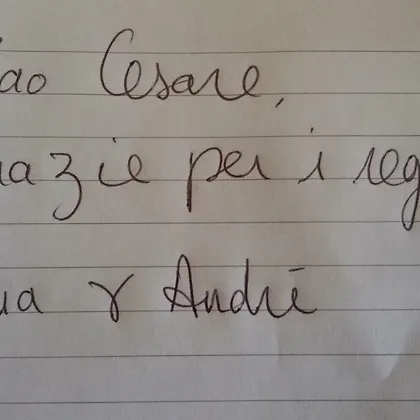 iao Cesare,
razie per i reg
ua & André